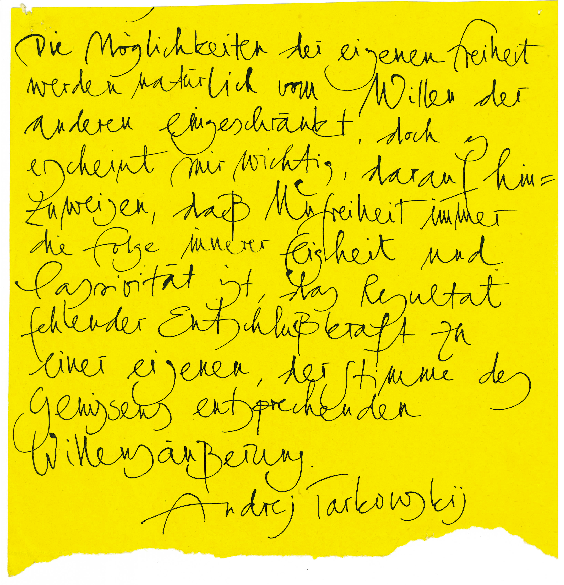 Die Möglichkeiten der eigenen Freiheit
werden natürlich vom Willen der
anderen eingeschränkt, doch es
erscheint mir wichtig, darauf hin=
zuweisen, daß Unfreiheit immer
die Folge innerer Feigheit und
Passivität ist, das Resultat
fehlender Entschlußkraft zu
einer eigenen, der Stimme des
Gewissens entsprechenden
Willensäußerung.
Andrej Tarkowskij